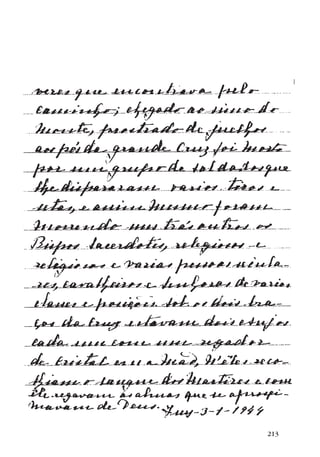 veres que encontrava pelo
caminho; chegado ao simo do
monte, prostrado de juelhos
aos pés da grande Cruz foi morto
por um grupo de soldados que
lhe dispararam varios tiros e
setas, e assim mesmo foram
morrendo uns trás outros os
Bispos Sacerdotes, religiosos e
religiosas e varias pessoas seculares,
res, cavalheiros e senhoras de varias
classes e posições. Sob os dois bra-
ços da Cruz estavam dois anjos
cada um com um regador
de cristal em a mão, N'eles reco-
lhiam o sangue dos Martires e com
êle regavam as almas que se aproxi-
mavam de Deus.
Tuy-3-1-1944
213